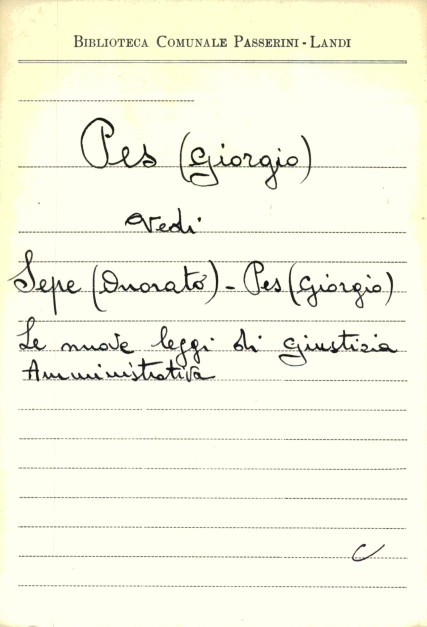 BIBLIOTECA COMUNALE PASSERINI - LANDI
Pes (Giorgio)
Vedi
Sepe (Onorato) - Pes (Giorgio)
Le nuove leggi di Giustizia
Amministrativa
C